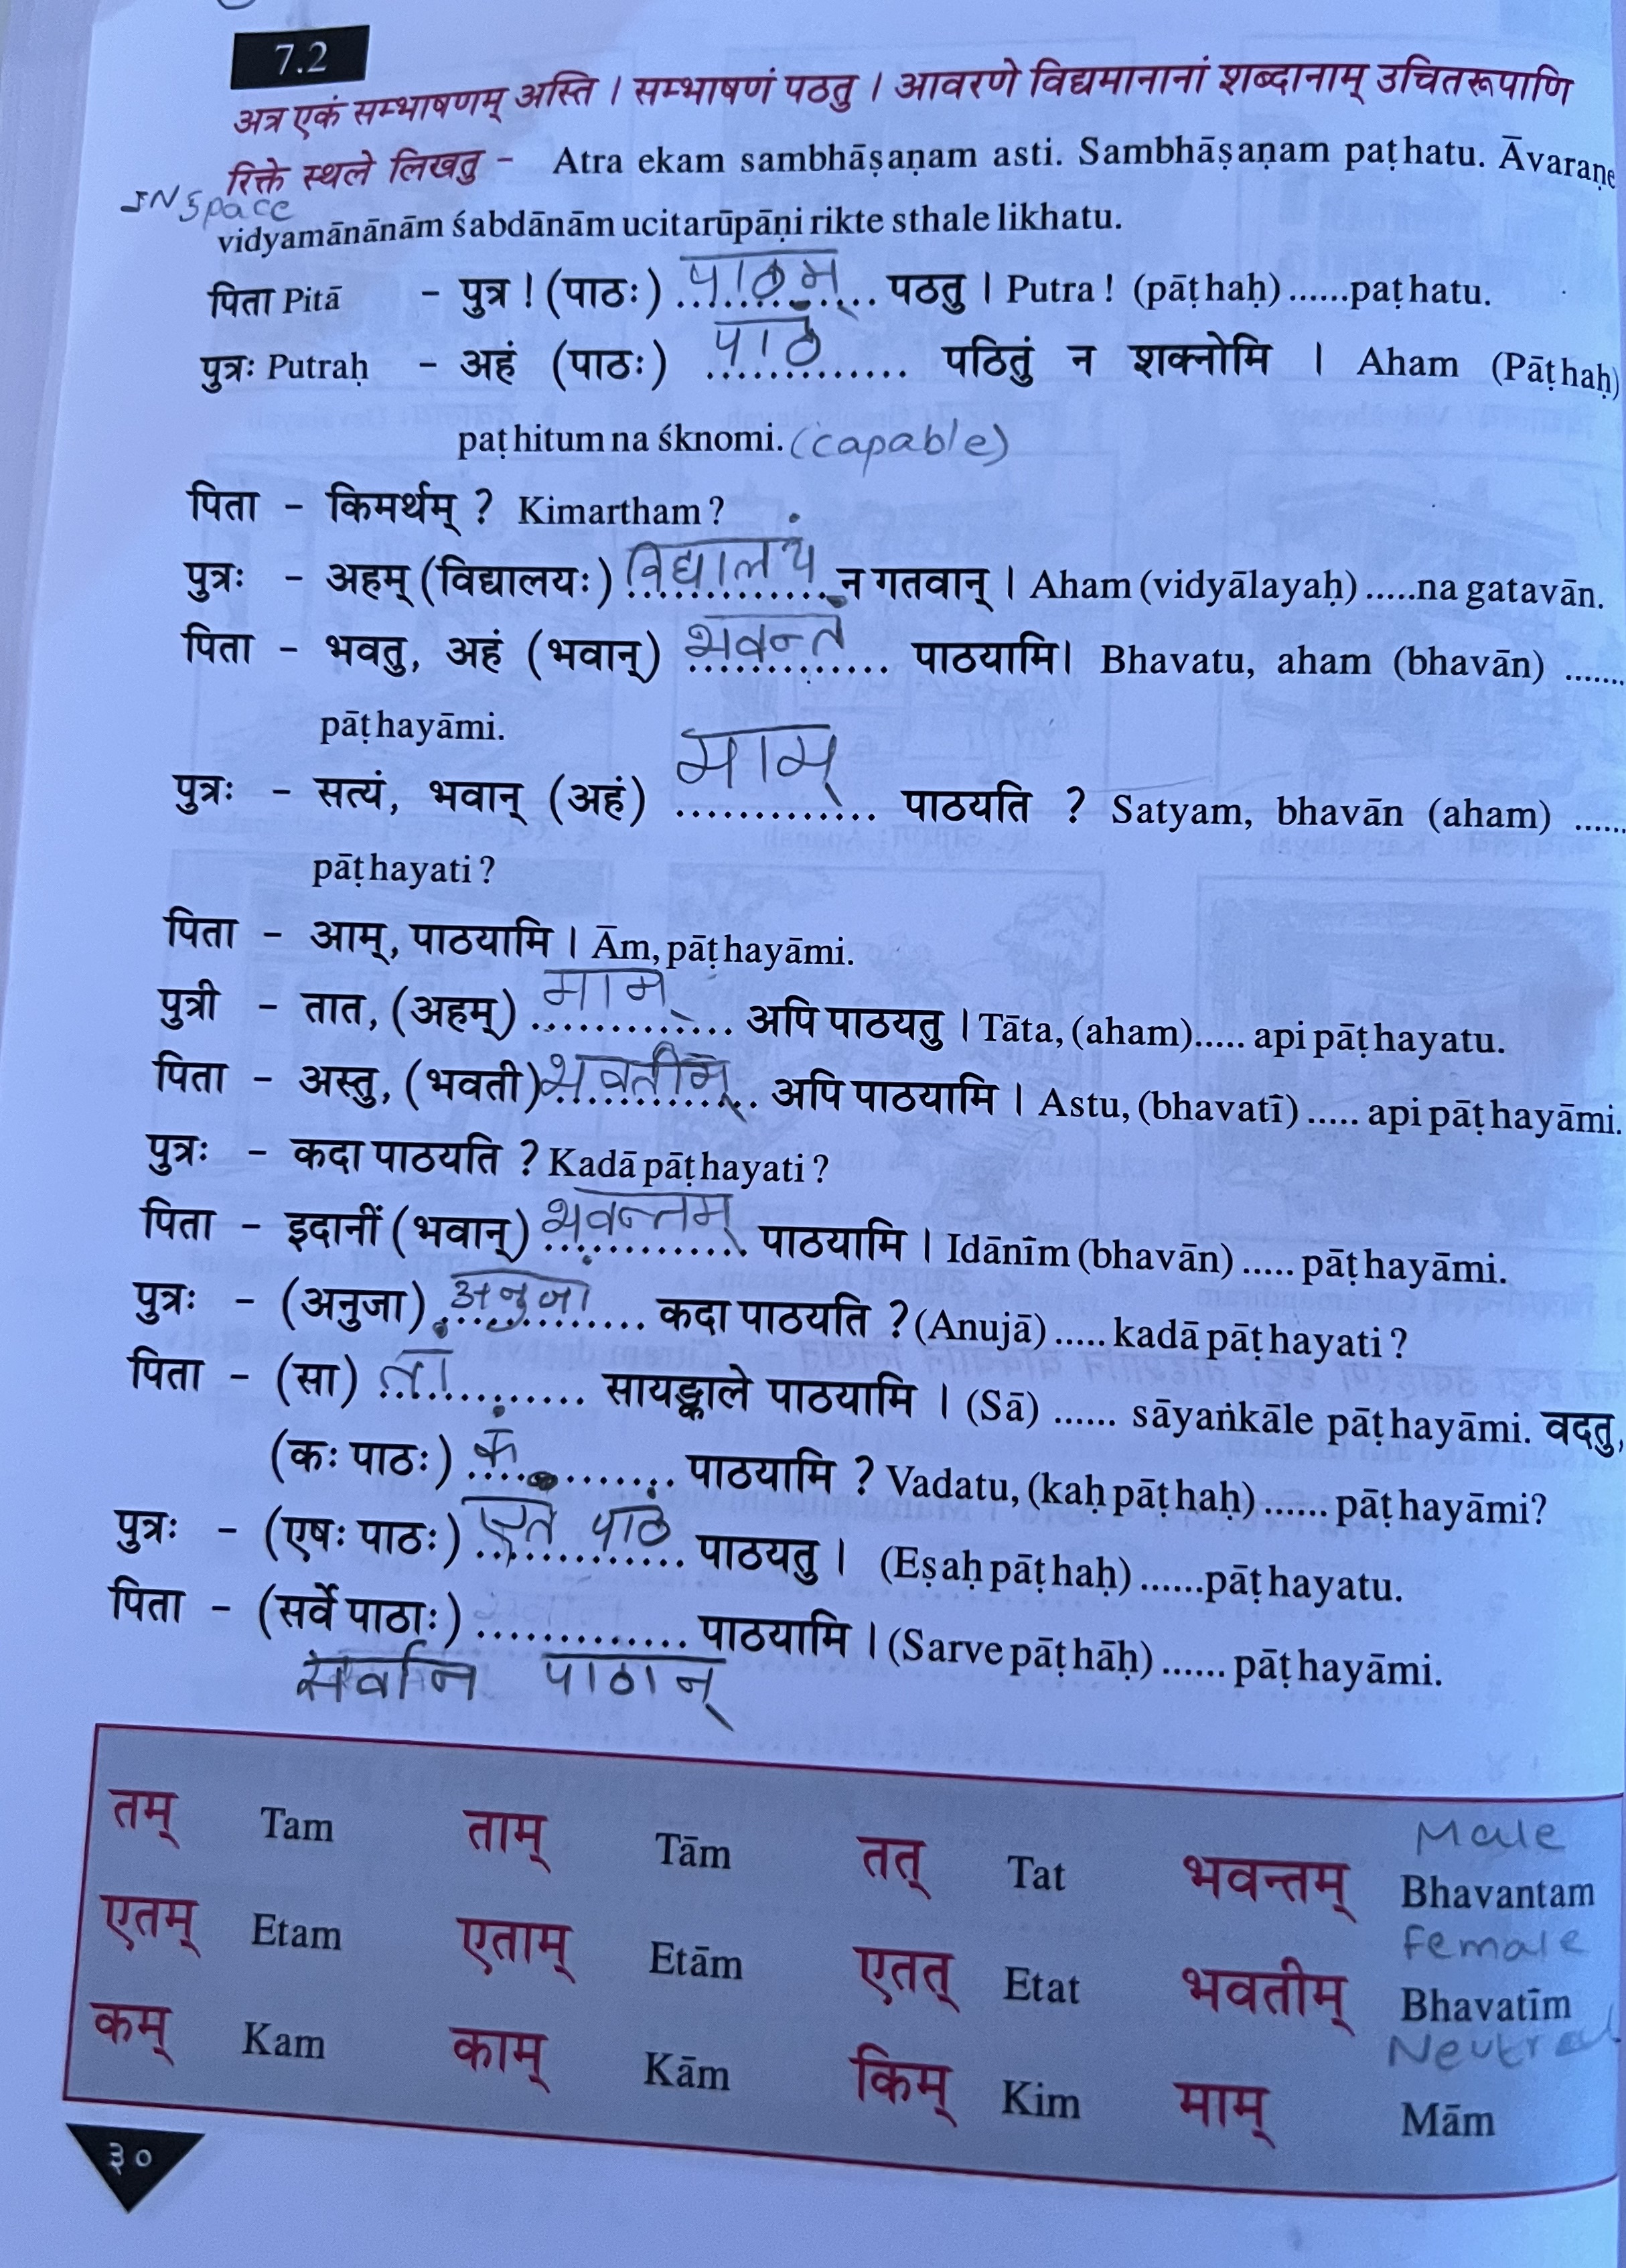 7.2
अत्र एकं सम्भाषणम् अस्ति । सम्भाषणं पठतु । आवरणे विद्यमानानां शब्दानाम् उचितरूपाणि
रिक्ते स्थले लिखतु - Atra ekam sambhāṣaṇam asti. Sambhāṣaṇam paṭhatu. Āvaraṇe
IN space
vidyamānānām śabdānām ucitarūpāṇi rikte sthale likhatu.
पिता Pitā - पुत्र ! (पाठः) पाठम् पठतु । Putra ! (pāṭhaḥ) ......paṭhatu.
पुत्रः Putraḥ - अहं (पाठः) पाठं पठितुं न शक्नोमि । Aham (Pāṭhaḥ)
paṭhitum na śknomi. (capable)
पिता - किमर्थम् ? Kimartham ?
पुत्रः - अहम् (विद्यालयः) विद्यालयं न गतवान् । Aham (vidyālayaḥ) .....na gatavān.
पिता - भवतु, अहं (भवान्) भवन्तं पाठयामि। Bhavatu, aham (bhavān) .......
pāṭhayāmi.
पुत्रः - सत्यं, भवान् (अहं) माम् पाठयति ? Satyam, bhavān (aham) ......
pāṭhayati ?
पिता - आम्, पाठयामि । Ām, pāṭhayāmi.
पुत्री - तात, (अहम्) माम् अपि पाठयतु । Tāta, (aham)..... api pāṭhayatu.
पिता - अस्तु, (भवती) भवतीम् अपि पाठयामि । Astu, (bhavatī) ..... api pāṭhayāmi.
पुत्रः - कदा पाठयति ? Kadā pāṭhayati ?
पिता - इदानीं (भवान्) भवन्तम् पाठयामि । Idānīm (bhavān) ..... pāṭhayāmi.
पुत्रः - (अनुजा) अनुजां कदा पाठयति ? (Anujā) ..... kadā pāṭhayati ?
पिता - (सा) तां सायङ्काले पाठयामि । (Sā) ...... sāyaṅkāle pāṭhayāmi. वदतु,
(कः पाठः) कं पाठयामि ? Vadatu, (kaḥ pāṭhaḥ) ...... pāṭhayāmi?
पुत्रः - (एषः पाठः) एतं पाठं पाठयतु । (Eṣaḥ pāṭhaḥ) ......pāṭhayatu.
पिता - (सर्वे पाठाः) ............. पाठयामि । (Sarve pāṭhāḥ) ...... pāṭhayāmi.
सर्वानि पाठान्
तम् Tam ताम् Tām तत् Tat भवन्तम् Bhavantam Male
एतम् Etam एताम् Etām एतत् Etat भवतीम् Bhavatīm Female
कम् Kam काम् Kām किम् Kim माम् Mām Neutral
३०